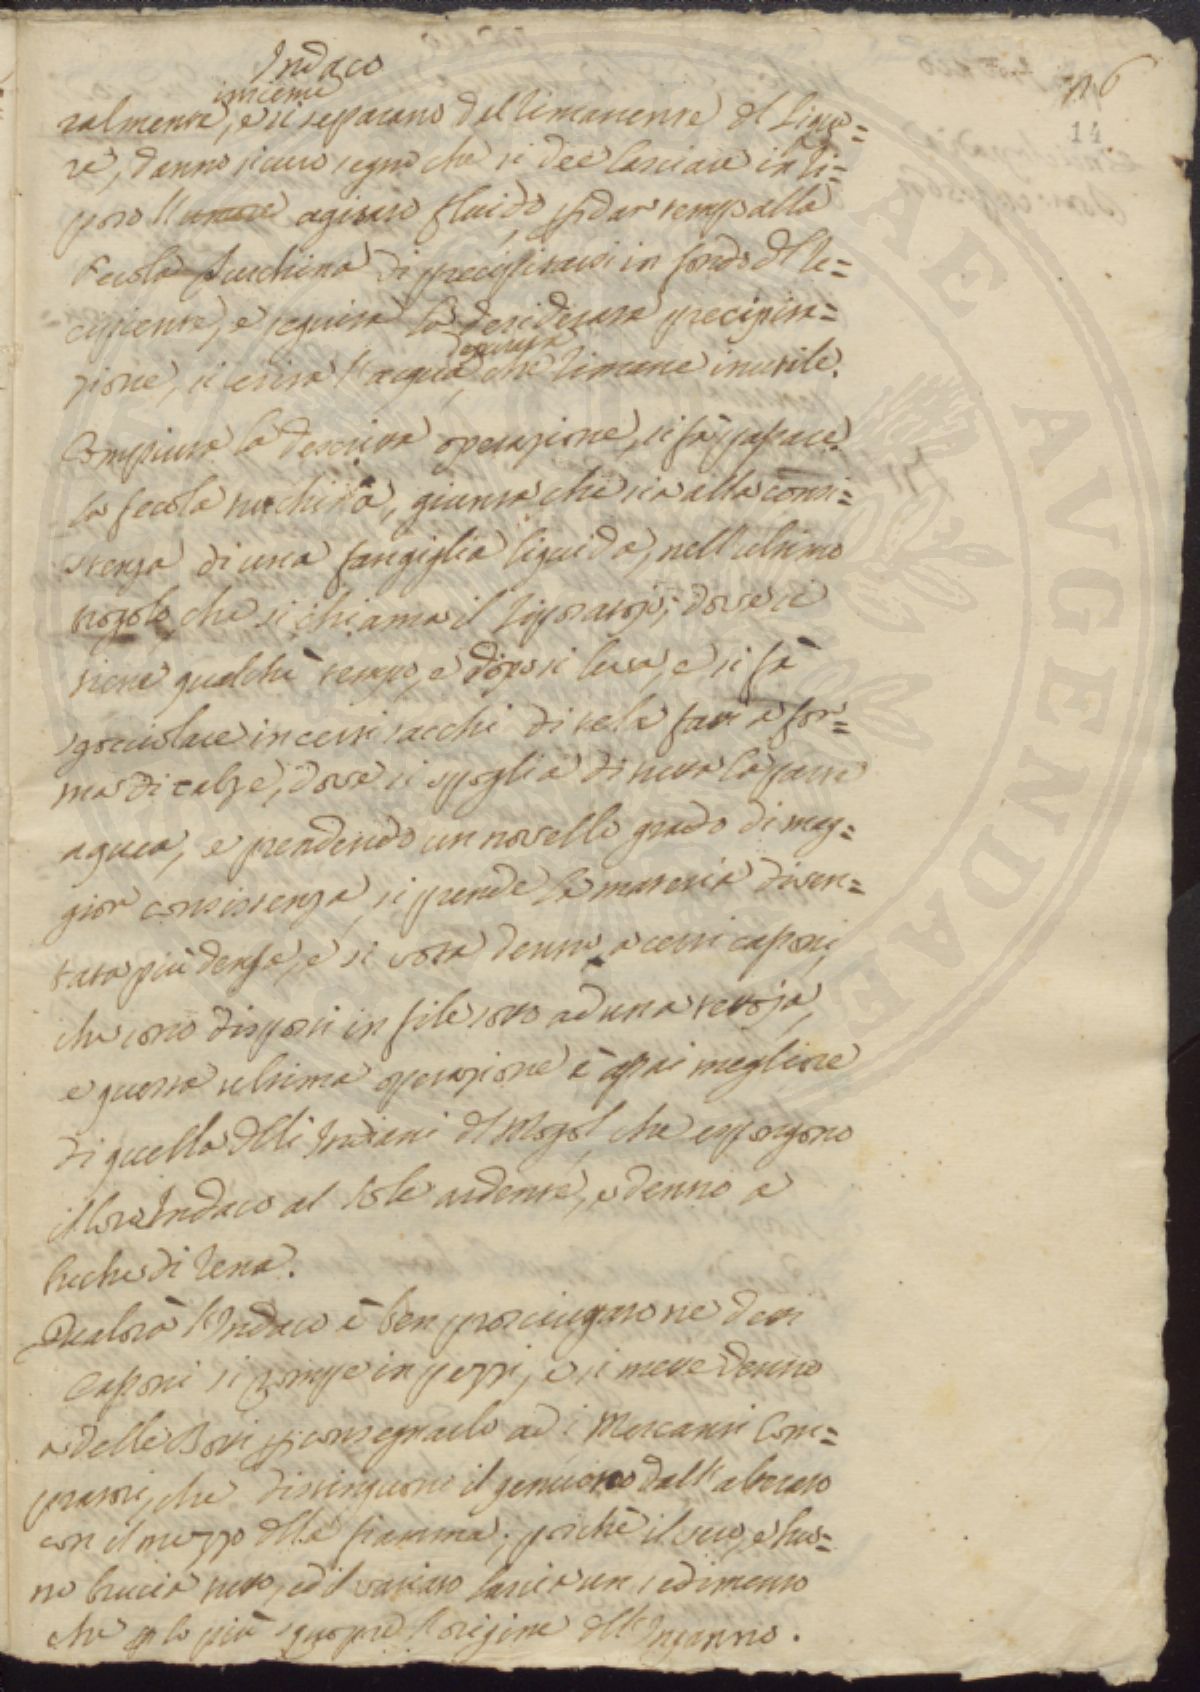 Indaco
n. 6
14
insieme
talmente, e si separano del rimanente del Liquo=
re, danno sicuro segno che si dee lasciare in ri=
poso l' agitato fluido, p dar tempo alla
Fecola turchina di precipitarsi in fondo del re=
cipiente, e seguita la desiderata precipita=
zione, si estrae l'acqua che rimane inutile.
Compiuta la descritta operazione, si fà passare
la fecola turchina, giunta che sia alla consi=
stenza di una fanghiglia liquida, nell'ultimo
che si chiama il riposatojo, dove si
tiene qualche tempo, e dopo si leva, e si fà
sgocciolare in certi sacchi di tela fatti a for=
ma di calze, dove si spoglia di tutta la parte
aquea, e prendendo un novello grado di mag=
gior consistenza, si prende la materia diven=
tata più densa, e si vota dentro a certi cassoni,
che sono disposti in file sotto ad una tettoja,
e questa ultima operazione è assai megliore
di quella delli Indiani del Mogol, che espongono
il loro Indaco al Sole ardente, e dentro a
buche di Terra.
Qualora l'Indaco è ben prosciugato ne detti
Cassoni si rompe in pezzi, e si mette dentro
a delle Botti p consegnarlo ad i Mercanti Com=
pratori, che distinguono il genuino dall' alterato
con il mezzo della fiamma; poichè il vero, e buo=
no brucia tutto, ed il viziato lascia un sedimento
che p lo più scuopre l'origine dell'Inganno.